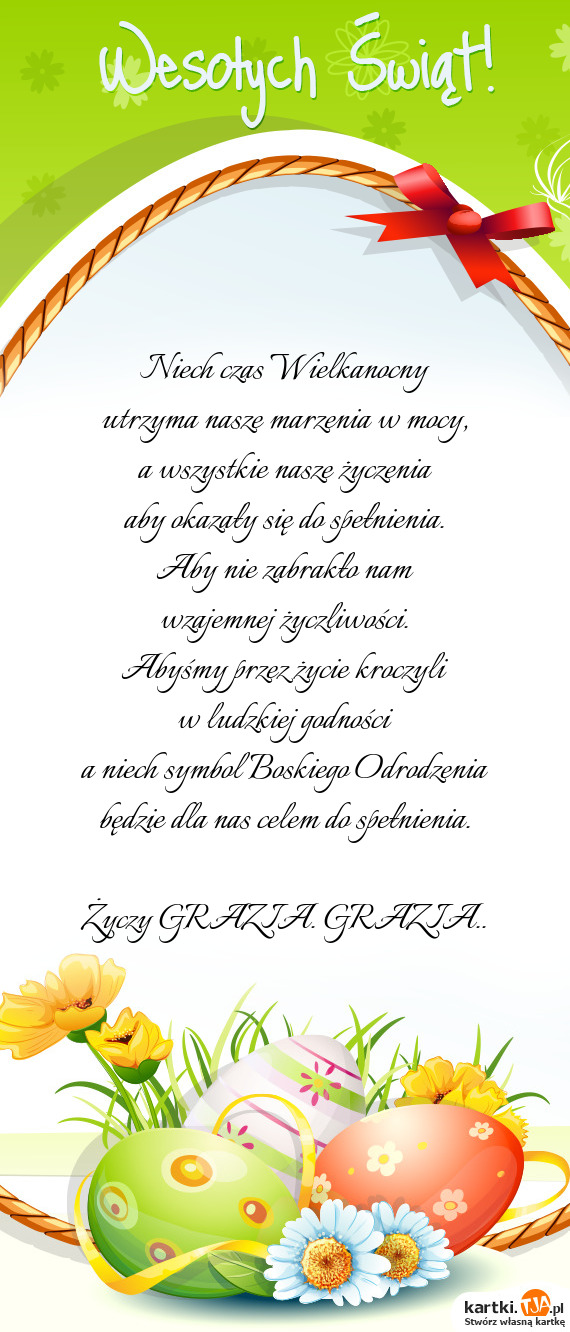 Wesołych Świąt!
Niech czas Wielkanocny
utrzyma naszę marzenia w mocy,
a wszystkie naszę życzenia
aby okazały się do spełnienia.
Aby nie zabrakło nam
wzajemnej życzliwości.
Abyśmy przez życie kroczyli
w ludzkiej godności
a niech symbol Boskiego Odrodzenia
będzie dla nas celem do spełnienia.
Życzy GRAZIA. GRAZIA..
kartki.TJA.pl
Stwórz własną kartkę